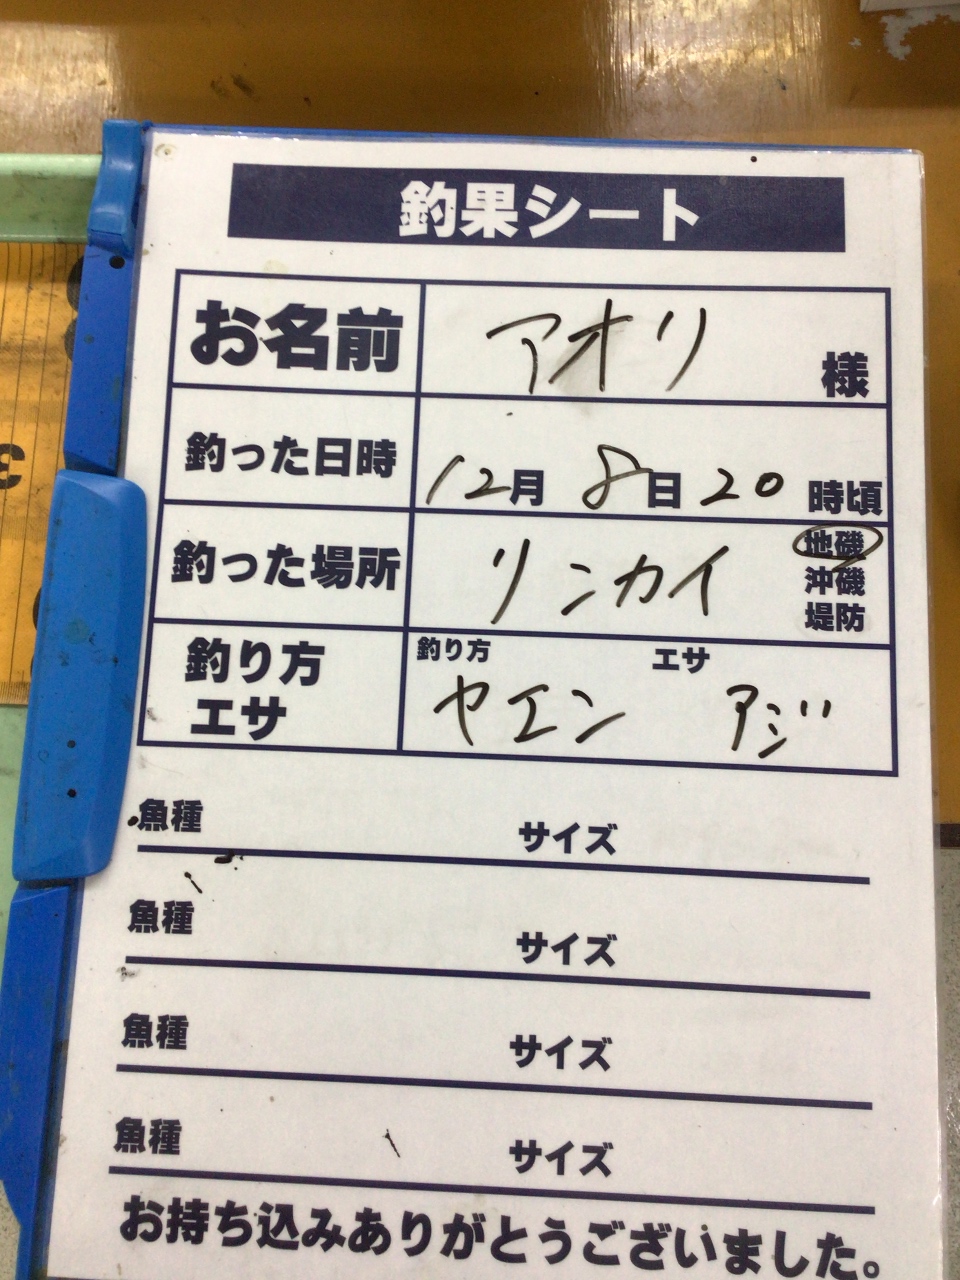 釣果シート
お名前 アオリ 様
釣った日時 12月 8日 20 時頃
釣った場所 リンカイ 地磯
沖磯
堤防
釣り方 釣り方 エサ
エサ ヤエン アジ
魚種 サイズ
魚種 サイズ
魚種 サイズ
魚種 サイズ
お持ち込みありがとうございました。